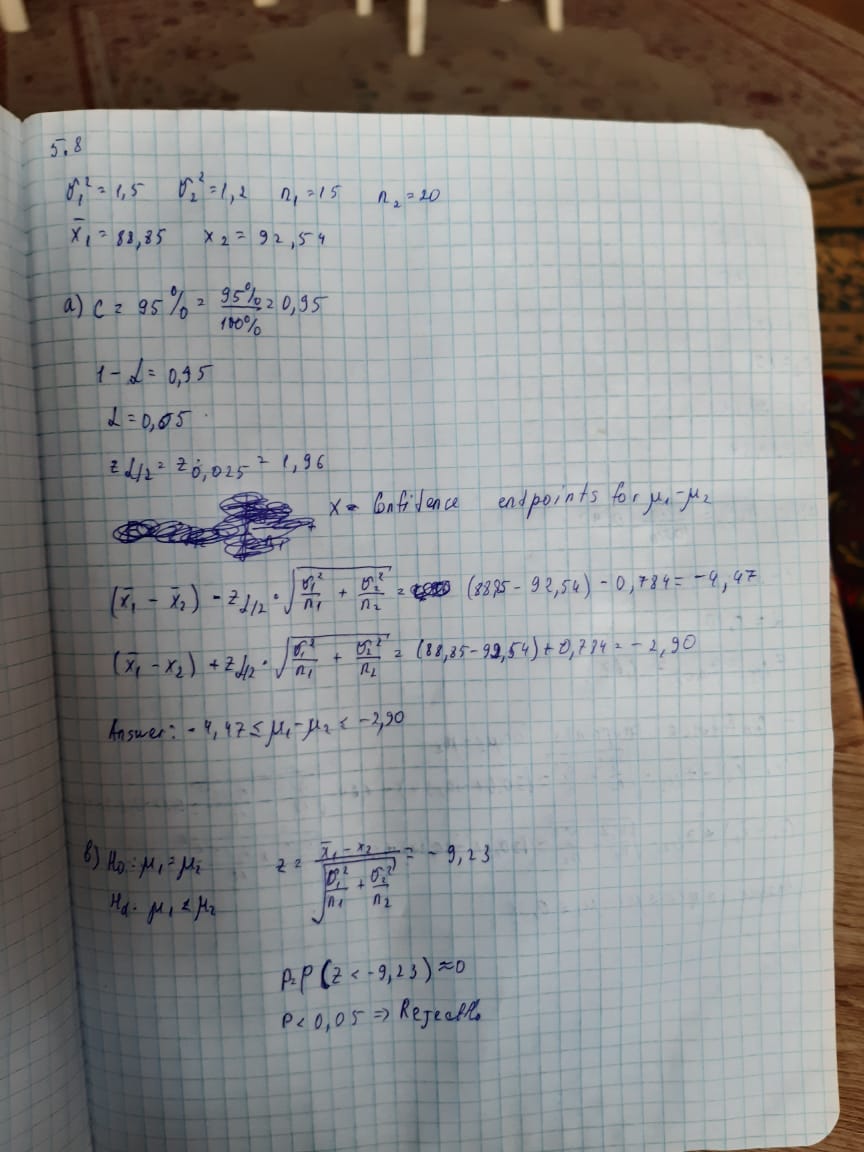 5.8
σ₁² = 1,5 σ₂² = 1,2 n₁ = 15 n₂ = 20
x̄₁ = 88,85 x₂ = 92,54
a) C = 95% = 95%/100% = 0,95
1 - α = 0,95
α = 0,05
z α/2 = z 0,025 = 1,96
x = Confidence endpoints for μ₁ - μ₂
(x̄₁ - x̄₂) - z α/2 · √(σ₁²/n₁ + σ₂²/n₂) = (88,85 - 92,54) - 0,784 = -4,47
(x̄₁ - x₂) + z α/2 · √(σ₁²/n₁ + σ₂²/n₂) = (88,85 - 92,54) + 0,784 = -2,90
Answer: - 4,47 ≤ μ₁ - μ₂ ≤ -2,90
b) H₀: μ₁ = μ₂ z = (x̄₁ - x₂)/√(σ₁²/n₁ + σ₂²/n₂) = - 9,23
Hα: μ₁ < μ₂
p = P (z < -9,23) ≈ 0
P < 0,05 ⇒ Reject H₀